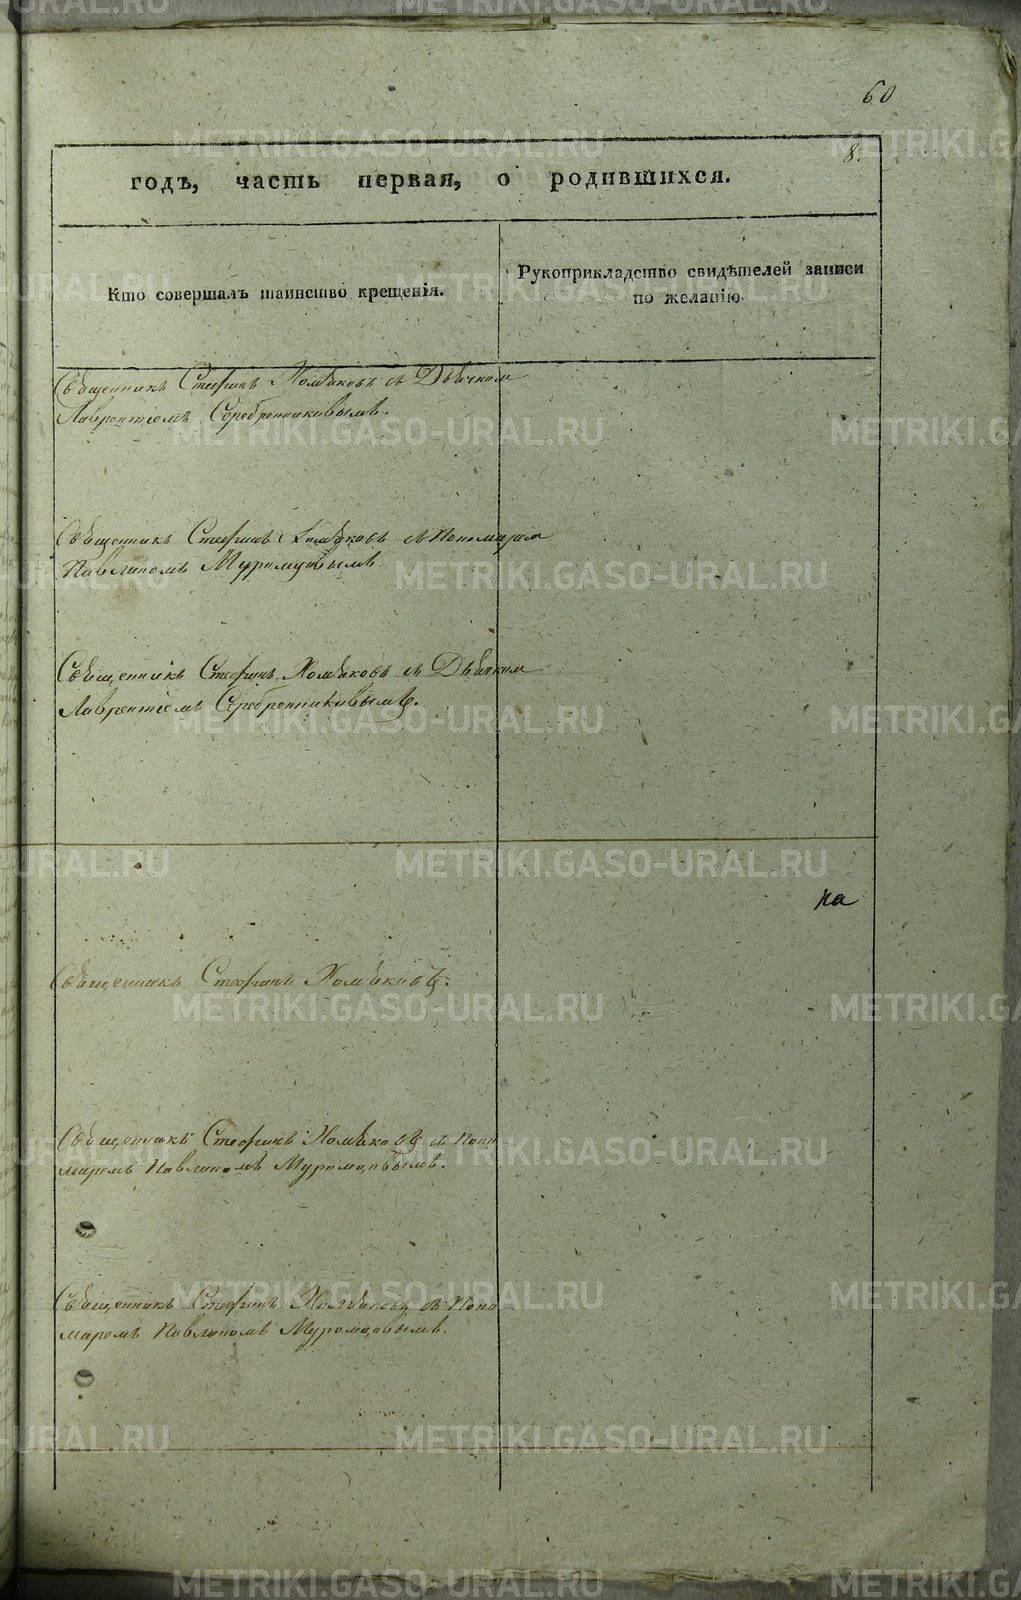 60
8.
годъ, часть первая, о родившихся.
Кто совершалъ таинство крещенія.
Рукоприкладство свидѣтелей записи
по желанію.
Священникъ Стефанъ Хомяковъ съ Дьячкомъ
Лаврентіемъ Серебренниковымъ.
Священникъ Стефанъ Хомяковъ съ Пономаремъ
Павлиномъ Муромцовымъ
Священникъ Стефанъ Хомяковъ съ Дьячкомъ
Лаврентіемъ Серебренниковымъ.
на
Священникъ Стефанъ Хомяковъ.
Священникъ Стефанъ Хомяковъ съ Поно
маремъ Павлиномъ Муромцовымъ.
Священникъ Стефанъ Хомяковъ съ Поно
маремъ Павлиномъ Муромцовымъ.
METRIKI.GASO-URAL.RU